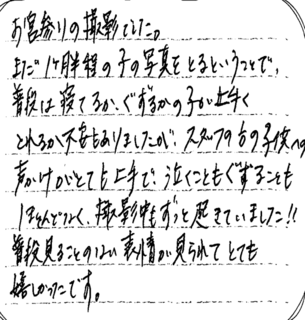 お宮参りの撮影でした。
まだ1ヶ月半程の子の写真をとるということで、
普段は寝てるか、ぐずるかの子が上手く
とれるか不安もありましたが、スタッフの方の子供への
声かけがとても上手で、泣くこともぐずることも
ほとんどなく、撮影中もずっと起きていました!!
普段見ることのない表情が見られてとても
嬉しかったです。